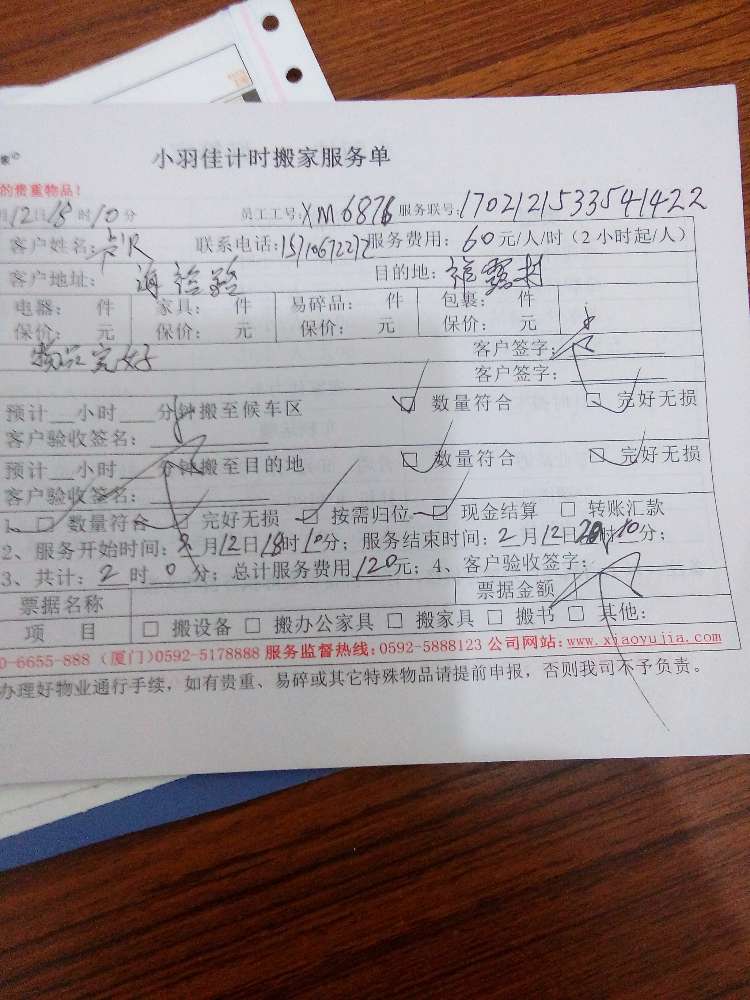 小羽佳计时搬家服务单
的贵重物品!
月12日18时10分 员工工号:XM6876 服务联号:170212153354 1422
客户姓名: 联系电话:15710672272 服务费用:60元/人/时(2小时起/人)
客户地址: 目的地:
电器: 件 家具: 件 易碎品: 件 包裹: 件
保价: 元 保价: 元 保价: 元 保价: 元
物品完好 客户签字:
客户签字:
预计__小时___分钟搬至候车区 ☑ 数量符合 ☑ 完好无损
客户验收签名:
预计__小时___分钟搬至目的地 ☑ 数量符合 ☑ 完好无损
客户验收签名:
1、☑ 数量符合 ☑ 完好无损 ☑ 按需归位 ☑ 现金结算 □ 转账汇款
2、服务开始时间:2月12日18时10分; 服务结束时间:2月12日20时10分;
3、共计:2时0分; 总计服务费用120元; 4、客户验收签字:
票据名称 票据金额
项 目 □ 搬设备 □ 搬办公家具 □ 搬家具 □ 搬书 □ 其他:
0-6655-888 (厦门)0592-5178888 服务监督热线:0592-5888123 公司网站:www.xiaoyujia.com
办理好物业通行手续,如有贵重、易碎或其它特殊物品请提前申报,否则我司不予负责。